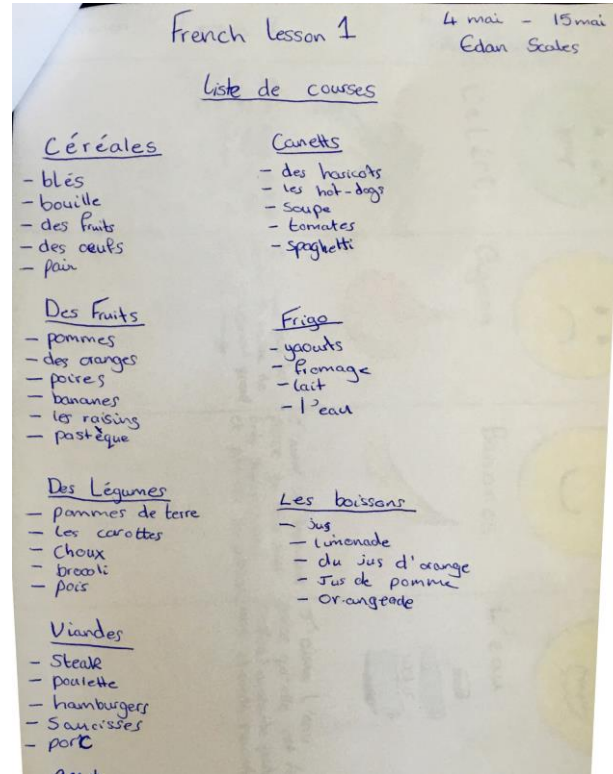 French lesson 1
4 mai - 15 mai
Edan Scales
Liste de courses
Céréales
- blés
- bouille
- des fruits
- des œufs
- pain
Des Fruits
- pommes
- des oranges
- poires
- bananes
- les raisins
- pastèque
Des Légumes
- pommes de terre
- Les carottes
- Choux
- brocoli
- pois
Viandes
- Steak
- poulette
- hamburgers
- Saucisses
- porc
Canetts
- des haricots
- les hot-dogs
- Soupe
- tomates
- spaghetti
Frigo
- yaourts
- fromage
- lait
- l'eau
Les boissons
- jus
- limonade
- du jus d'orange
- Jus de pomme
- Orangeade